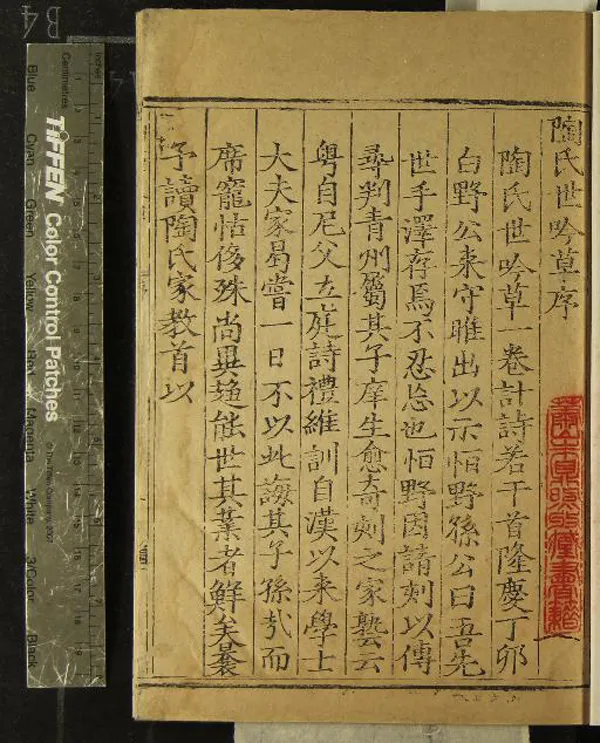 陶氏世吟草序
陶氏世吟草一卷計詩若干首隆慶丁卯
白野公来守睢出以示恒野孫公曰吾先
世手澤存焉不忍忘也恒野因請刻以傳
尋判青州屬其子庠生愈奇刻之家塾云
粤自尼父立庭詩禮維訓自漢以来學士
大夫家曷嘗一日不以此誨其子孫㢤而
席寵怙侈殊尚異趨能世其業者鮮矣曩
予讀陶氏家教首以
藏書籍
B4
TIFFEN Color Control Patches
© The Tiffen Company, 2007
Centimetres
Inches
Blue
Cyan
Green
Yellow
Red
Magenta
White
3/Color
Black